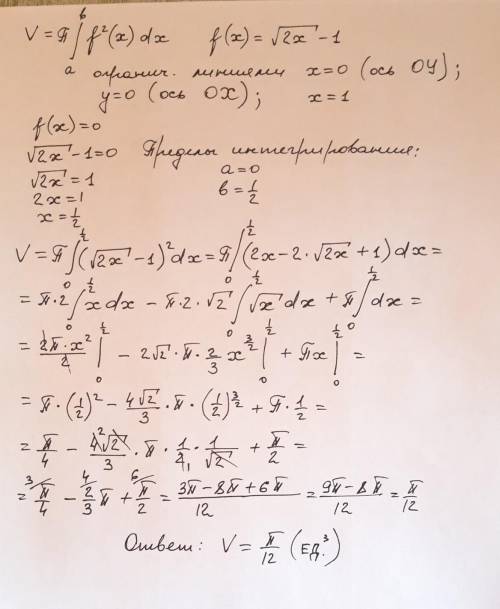 V = π ∫ₐᵇ f²(x) dx    f(x) = √2x - 1
огранич. линиями x=0 (ось OY);
y=0 (ось OX);    x=1
f(x)=0
√2x - 1=0    Пределы интегрирования:
√2x = 1    a=0
2x=1    b=1/2
x=1/2
V = π ∫₀^(1/2) (√2x - 1)² dx = π ∫₀^(1/2) (2x - 2·√2x + 1) dx =
= π·2 ∫₀^(1/2) x dx - π·2·√2 ∫₀^(1/2) √x dx + π ∫₀^(1/2) dx =
= 2π·x²/2 |₀^(1/2) - 2√2·π·2/3 x^(3/2) |₀^(1/2) + πx |₀^(1/2) =
= π·(1/2)² - 4√2/3·π·(1/2)^(3/2) + π·1/2 =
= π/4 - 4²√2/3·π·1/2₁·1/√2 + π/2 =
= ³⁄π/4 - ⁴⁄2/3 π + ⁶⁄π/2 = (3π - 8π + 6π)/12 = (9π - 8π)/12 = π/12
Ответ: V = π/12 (ЕД.³)